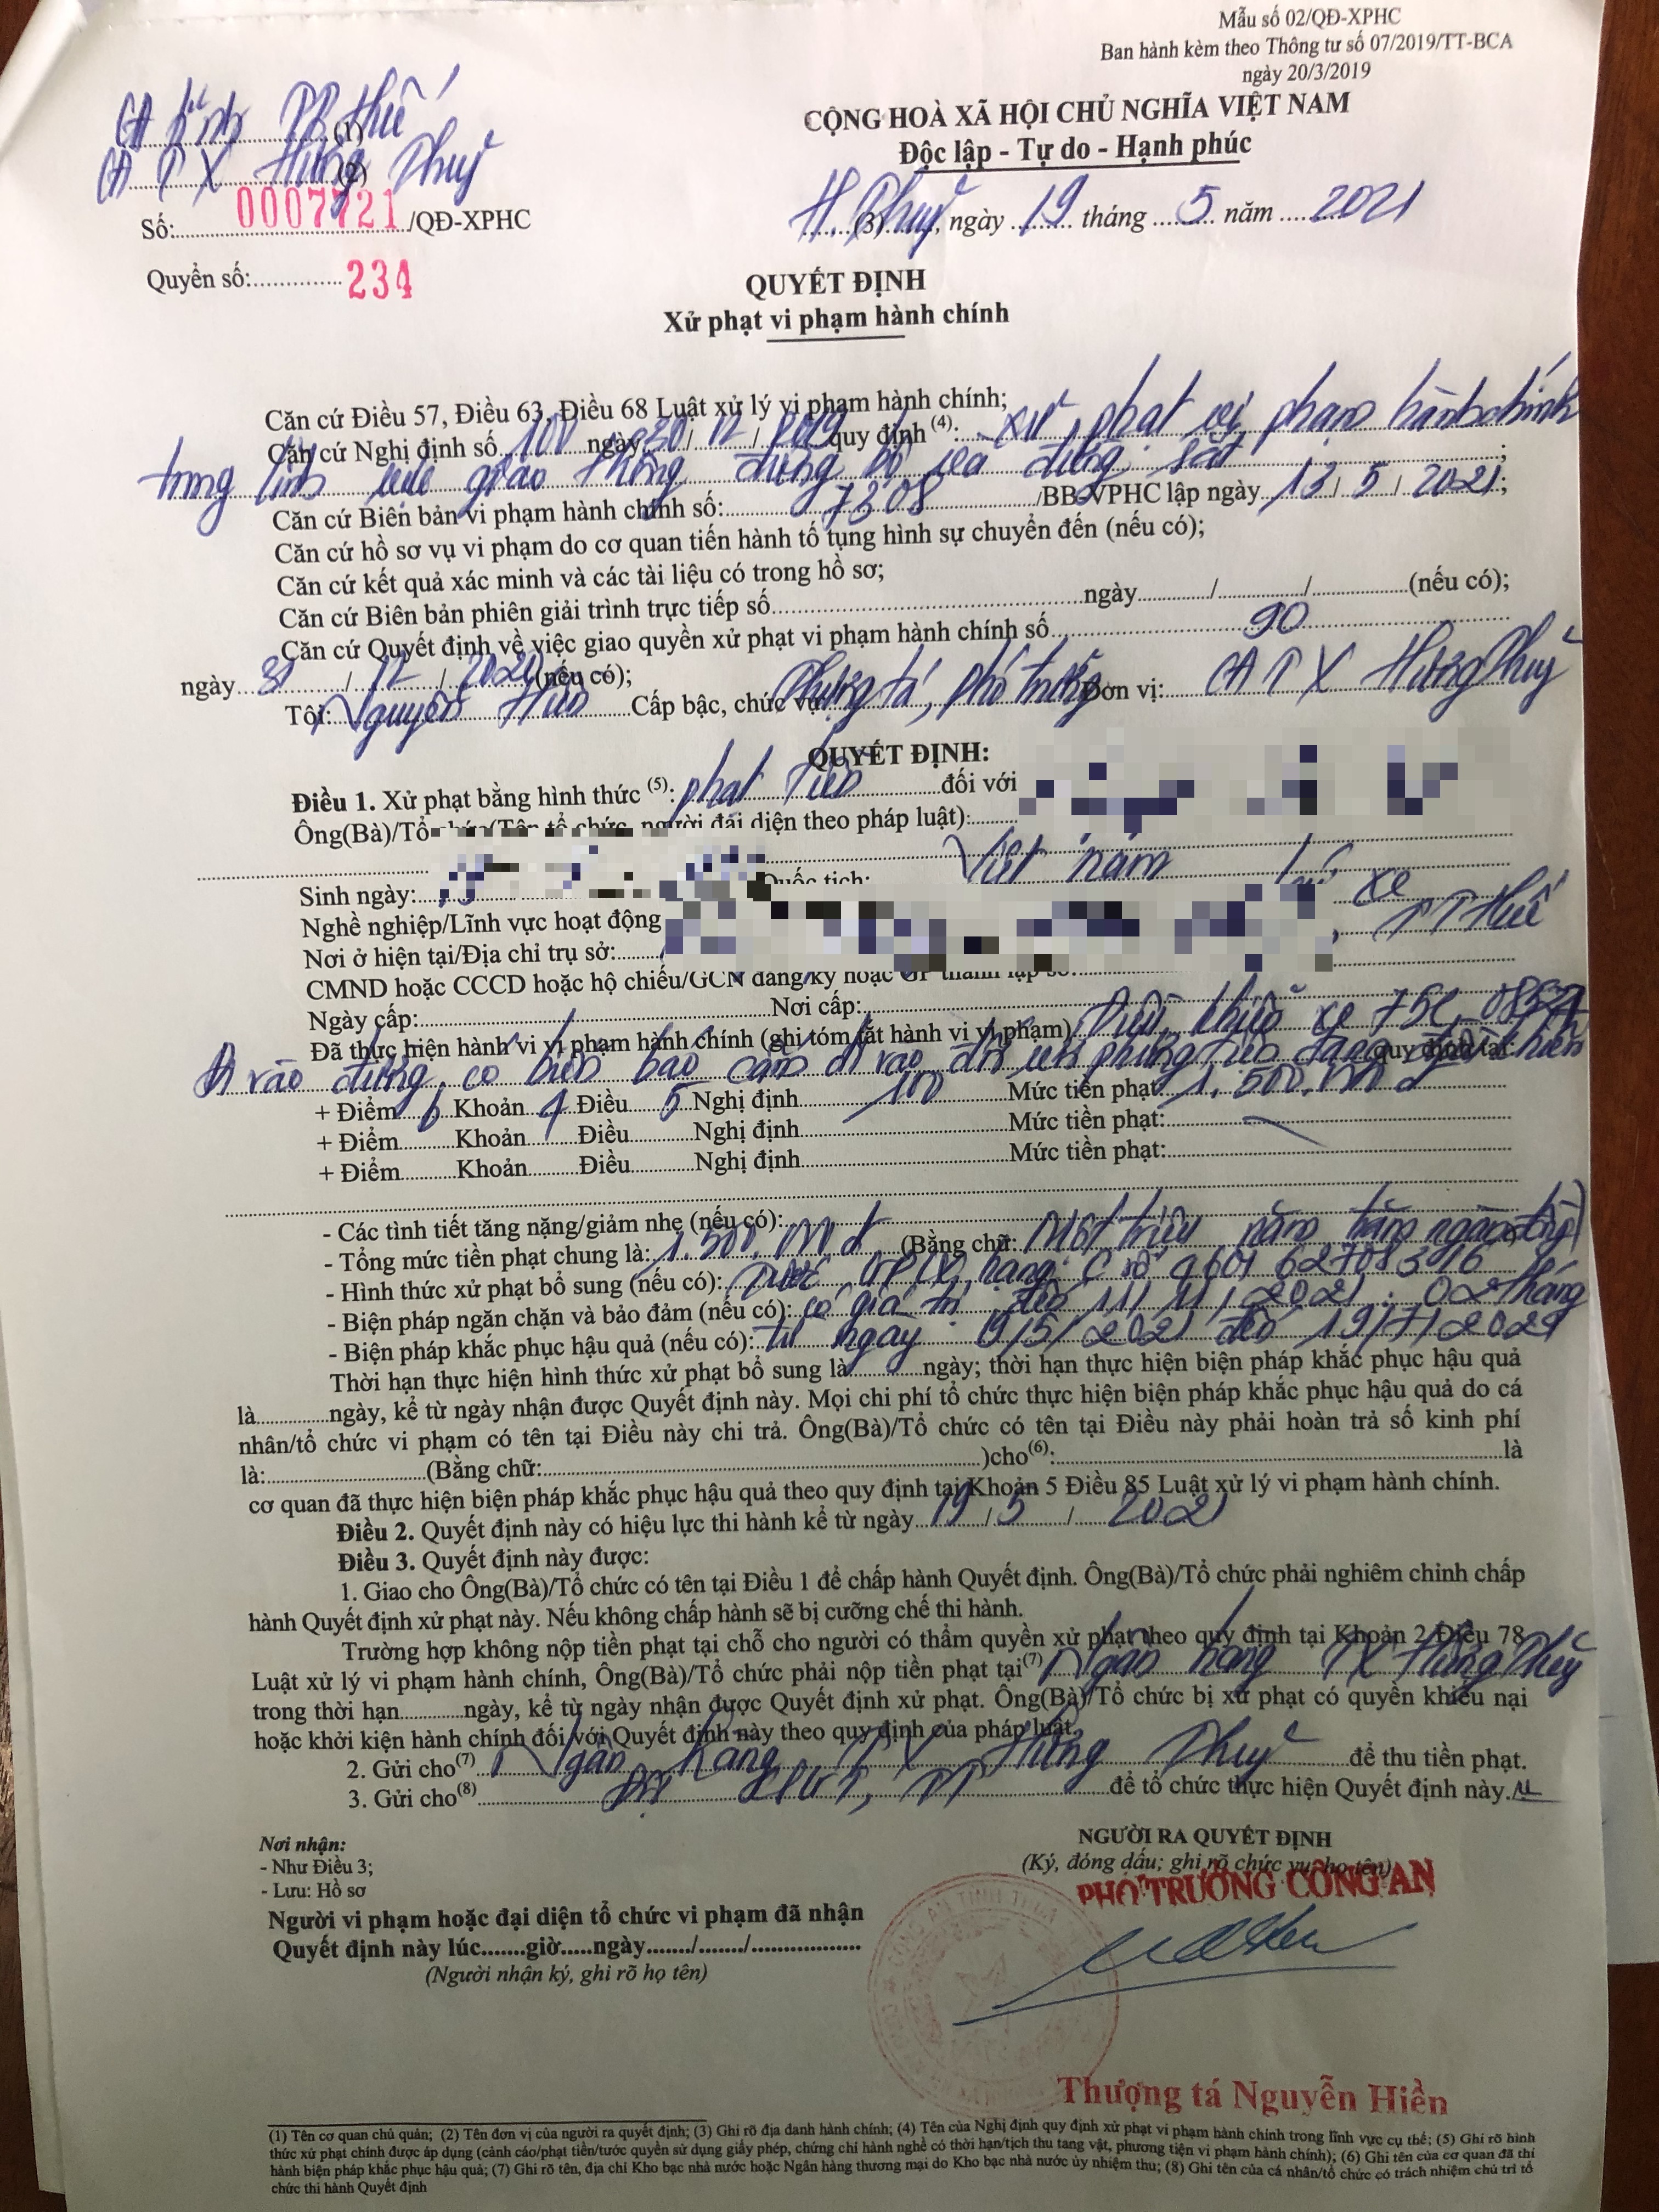 Mẫu số 02/QĐ-XPHC
Ban hành kèm theo Thông tư số 07/2019/TT-BCA
ngày 20/3/2019
CA tỉnh TT Huế (1)
CỘNG HOÀ XÃ HỘI CHỦ NGHĨA VIỆT NAM
CA TX Hương Thuỷ (2)
Độc lập - Tự do - Hạnh phúc
Số: 0007721/QĐ-XPHC
H. Thuỷ (3), ngày 19 tháng 5 năm 2021
Quyển số: 234
QUYẾT ĐỊNH
Xử phạt vi phạm hành chính
Căn cứ Điều 57, Điều 63, Điều 68 Luật xử lý vi phạm hành chính;
Căn cứ Nghị định số 100 ngày 30/12/2019 quy định (4): xử phạt vi phạm hành chính
trong lĩnh vực giao thông đường bộ và đường sắt;
Căn cứ Biên bản vi phạm hành chính số: 7308/BB-VPHC lập ngày 13/5/2021;
Căn cứ hồ sơ vụ vi phạm do cơ quan tiến hành tố tụng hình sự chuyển đến (nếu có);
Căn cứ kết quả xác minh và các tài liệu có trong hồ sơ;
Căn cứ Biên bản phiên giải trình trực tiếp số ngày / / (nếu có);
Căn cứ Quyết định về việc giao quyền xử phạt vi phạm hành chính số 90
ngày 31/12/2020 (nếu có);
Tôi: Nguyễn Hiền Cấp bậc, chức vụ: Thượng tá, phó trưởng Đơn vị: CA TX Hương Thuỷ
QUYẾT ĐỊNH:
Điều 1. Xử phạt bằng hình thức (5): phạt tiền đối với
Ông(Bà)/Tổ chức (Tên tổ chức, người đại diện theo pháp luật):
Sinh ngày: Quốc tịch: Việt nam
Nghề nghiệp/Lĩnh vực hoạt động lái xe
Nơi ở hiện tại/Địa chỉ trụ sở: , TT Huế
CMND hoặc CCCD hoặc hộ chiếu/GCN đăng ký hoặc GP thành lập số:
Ngày cấp: Nơi cấp:
Đã thực hiện hành vi vi phạm hành chính (ghi tóm tắt hành vi vi phạm): Điều khiển xe 75C
đi vào đường có biển báo cấm đi vào đối với phương tiện đang điều khiển quy định tại:
+ Điểm b Khoản 4 Điều 5 Nghị định 100 Mức tiền phạt: 1.500.000đ
+ Điểm Khoản Điều Nghị định Mức tiền phạt:
+ Điểm Khoản Điều Nghị định Mức tiền phạt:
- Các tình tiết tăng nặng/giảm nhẹ (nếu có):
- Tổng mức tiền phạt chung là: 1.500.000đ (Bằng chữ: Một triệu năm trăm ngàn đồng)
- Hình thức xử phạt bổ sung (nếu có): Tước GPLX hạng C số 460162708316
- Biện pháp ngăn chặn và bảo đảm (nếu có): có giá trị đến 11/11/2021. 02 tháng
- Biện pháp khắc phục hậu quả (nếu có): từ ngày 19/5/2021 đến 19/7/2021
Thời hạn thực hiện hình thức xử phạt bổ sung là ngày; thời hạn thực hiện biện pháp khắc phục hậu quả
là ngày, kể từ ngày nhận được Quyết định này. Mọi chi phí tổ chức thực hiện biện pháp khắc phục hậu quả do cá
nhân/tổ chức vi phạm có tên tại Điều này chi trả. Ông(Bà)/Tổ chức có tên tại Điều này phải hoàn trả số kinh phí
là: (Bằng chữ: )cho(6): là
cơ quan đã thực hiện biện pháp khắc phục hậu quả theo quy định tại Khoản 5 Điều 85 Luật xử lý vi phạm hành chính.
Điều 2. Quyết định này có hiệu lực thi hành kể từ ngày 19/5/2021
Điều 3. Quyết định này được:
1. Giao cho Ông(Bà)/Tổ chức có tên tại Điều 1 để chấp hành Quyết định. Ông(Bà)/Tổ chức phải nghiêm chỉnh chấp
hành Quyết định xử phạt này. Nếu không chấp hành sẽ bị cưỡng chế thi hành.
Trường hợp không nộp tiền phạt tại chỗ cho người có thẩm quyền xử phạt theo quy định tại Khoản 2 Điều 78
Luật xử lý vi phạm hành chính, Ông(Bà)/Tổ chức phải nộp tiền phạt tại(7) Ngân hàng TX Hương Thuỷ
trong thời hạn ngày, kể từ ngày nhận được Quyết định xử phạt. Ông(Bà)/Tổ chức bị xử phạt có quyền khiếu nại
hoặc khởi kiện hành chính đối với Quyết định này theo quy định của pháp luật.
2. Gửi cho(7) Ngân hàng TX Hương Thuỷ để thu tiền phạt.
3. Gửi cho(8) để tổ chức thực hiện Quyết định này./.
Nơi nhận:
- Như Điều 3;
- Lưu: Hồ sơ
NGƯỜI RA QUYẾT ĐỊNH
(Ký, đóng dấu; ghi rõ chức vụ, họ tên)
PHÓ TRƯỞNG CÔNG AN
Người vi phạm hoặc đại diện tổ chức vi phạm đã nhận
Quyết định này lúc.......giờ.....ngày......./......./..................
(Người nhận ký, ghi rõ họ tên)
Thượng tá Nguyễn Hiền
(1) Tên cơ quan chủ quản; (2) Tên đơn vị của người ra quyết định; (3) Ghi rõ địa danh hành chính; (4) Tên của Nghị định quy định xử phạt vi phạm hành chính trong lĩnh vực cụ thể; (5) Ghi rõ hình
thức xử phạt chính được áp dụng (cảnh cáo/phạt tiền/tước quyền sử dụng giấy phép, chứng chỉ hành nghề có thời hạn/tịch thu tang vật, phương tiện vi phạm hành chính); (6) Ghi tên của cơ quan đã thi
hành biện pháp khắc phục hậu quả; (7) Ghi rõ tên, địa chỉ Kho bạc nhà nước hoặc Ngân hàng thương mại do Kho bạc nhà nước ủy nhiệm thu; (8) Ghi tên của cá nhân/tổ chức có trách nhiệm chủ trì tổ
chức thi hành Quyết định